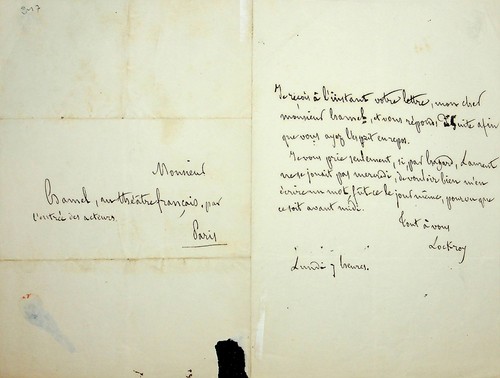 9-17
Monsieur
hamel, au théâtre français, par
l'entrée des acteurs.
Paris
Je reçois à l'instant votre lettre, mon cher
monsieur hamel, et vous réponds, suite afin
que vous ayez l'esprit en repos.
Je vous prie seulement, si, par hazard, Laurent
ne se jouait pas mercredi, de vouloir bien m'en
écrire un mot, fût ce le jour même, pourvu que
ce soit avant midi.
Tout à vous
Lockroy
Lundi 7 heures.